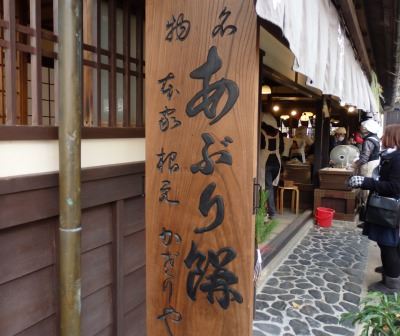 名物
あぶり餅
本家 根元 かざりや